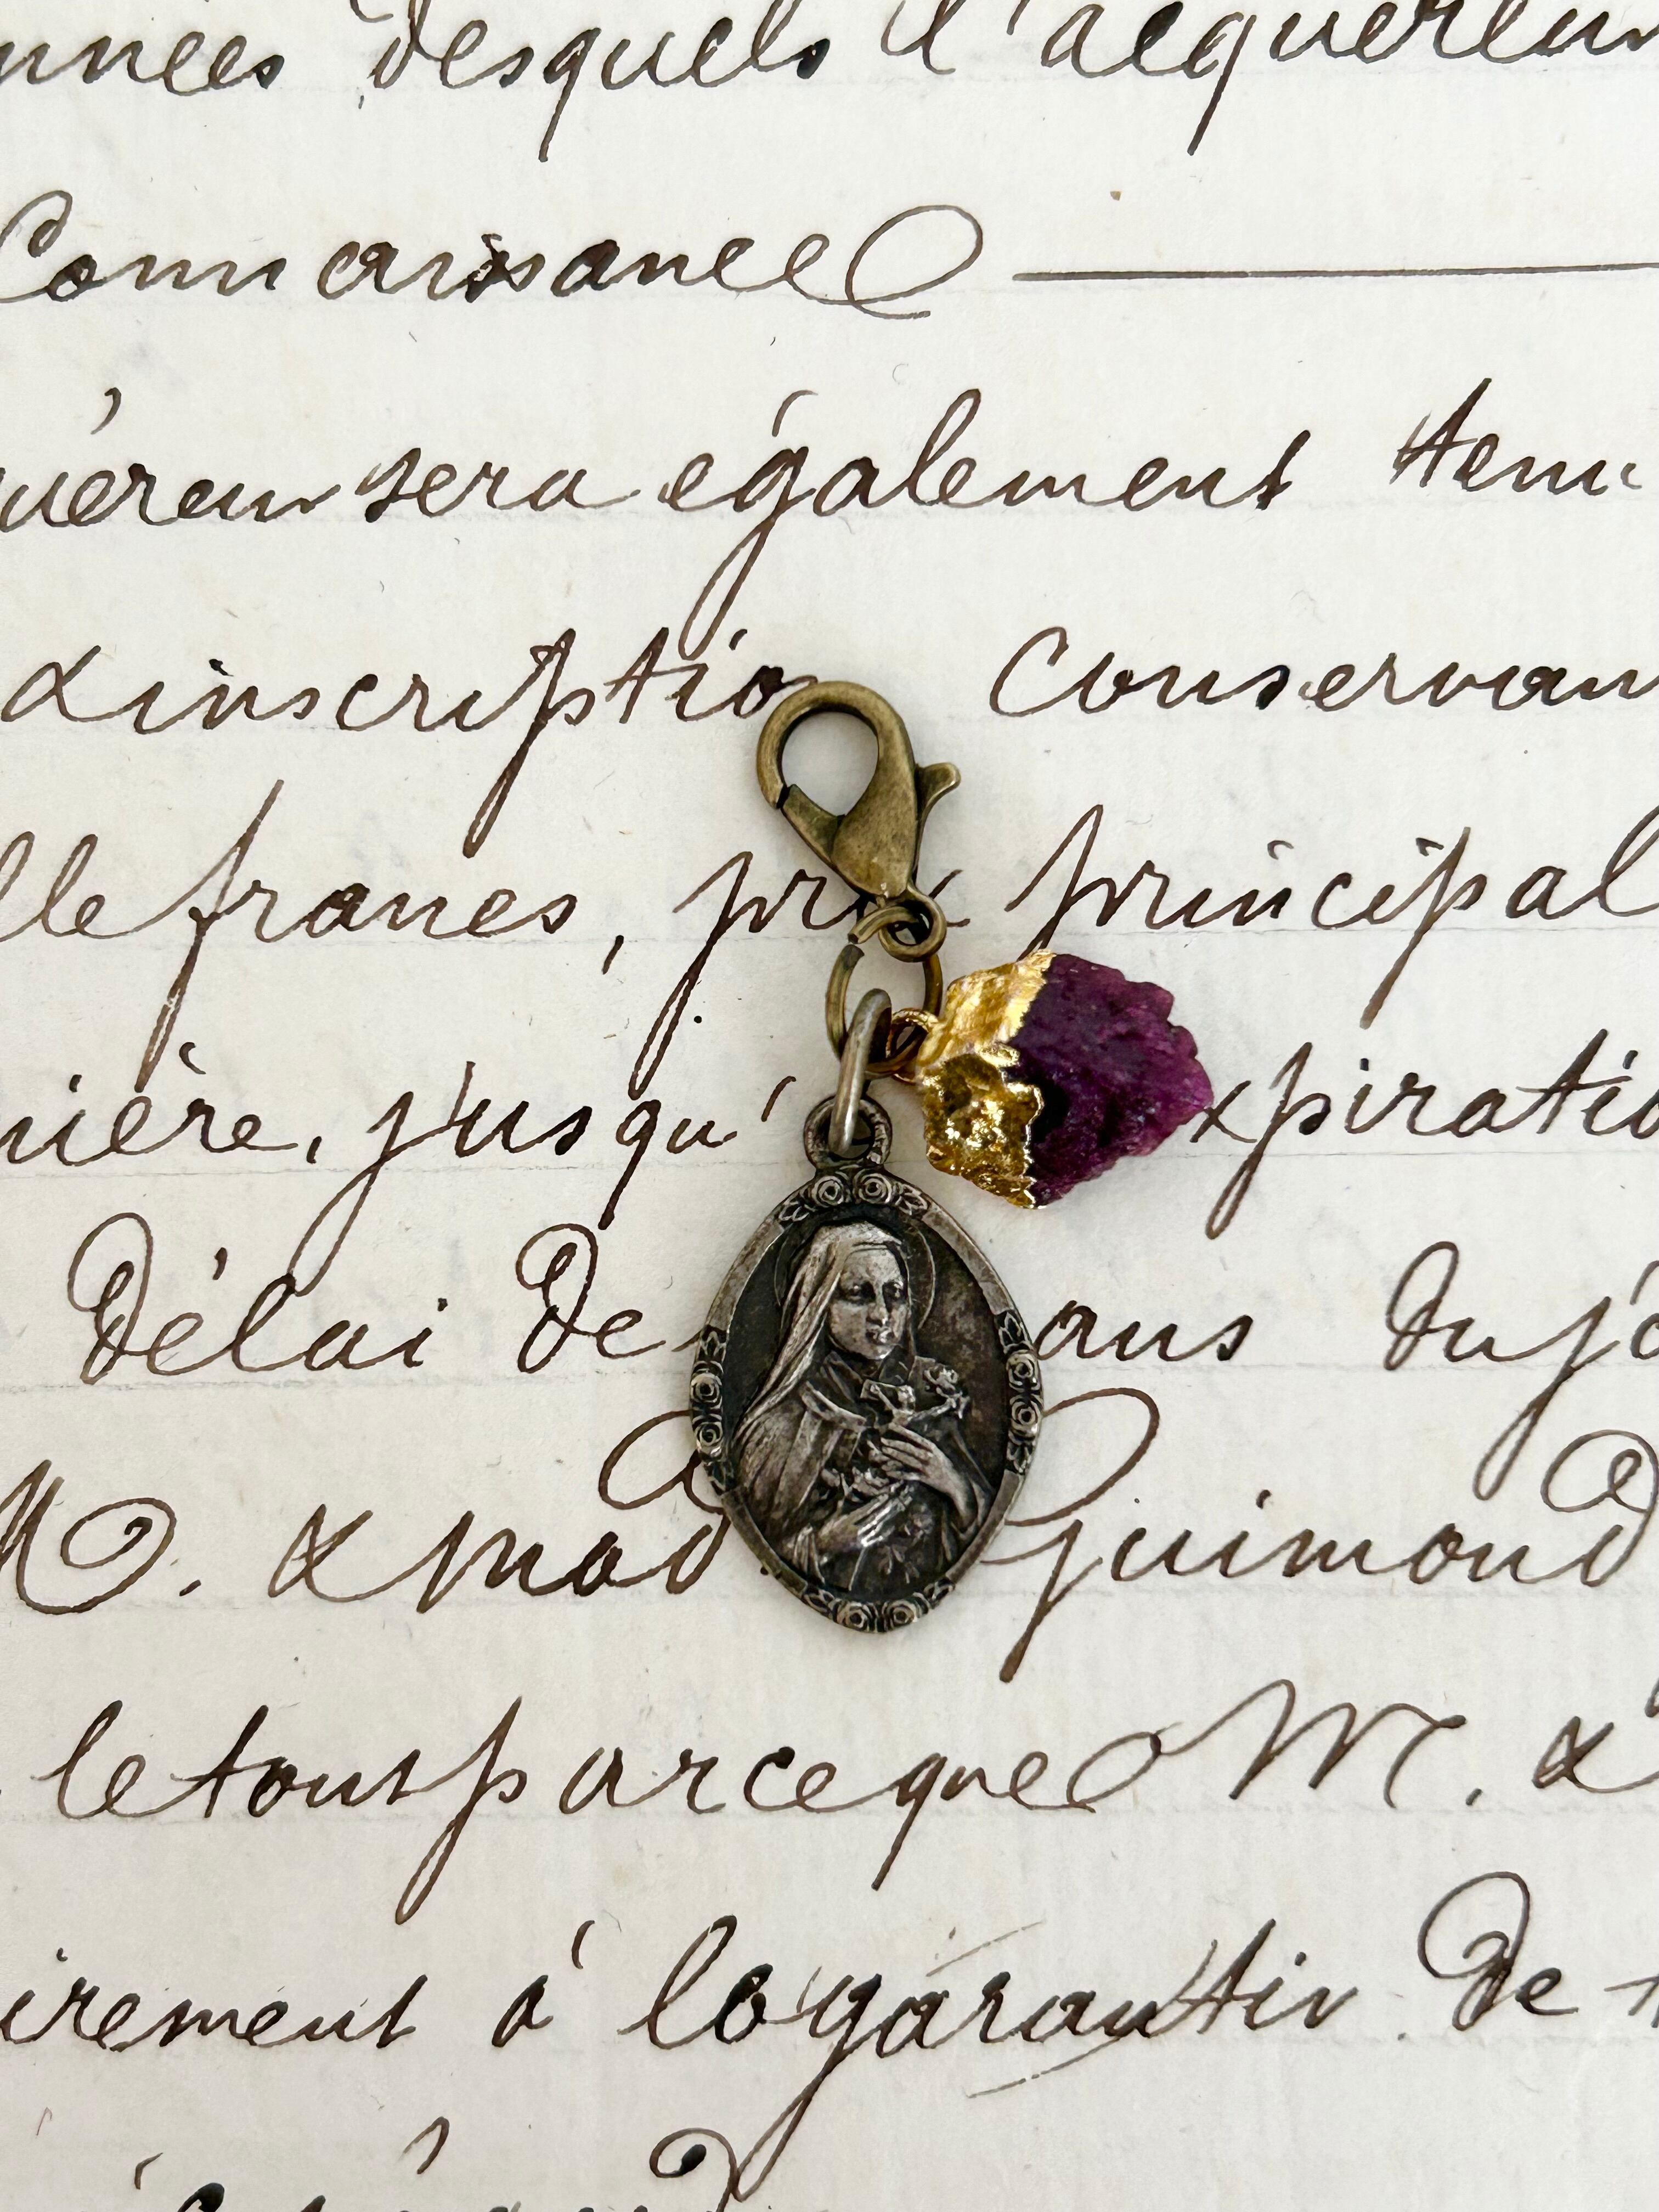 nnées desquels l'acquéreur
Connaissance
uéreur sera également tenu
d'inscription conservan
lle francs, prix principal
nière, jusqu' xpiratio
Délai de ans du jo
M. & Mad Guimond
le tout parce que M. &
irement à la garantie de